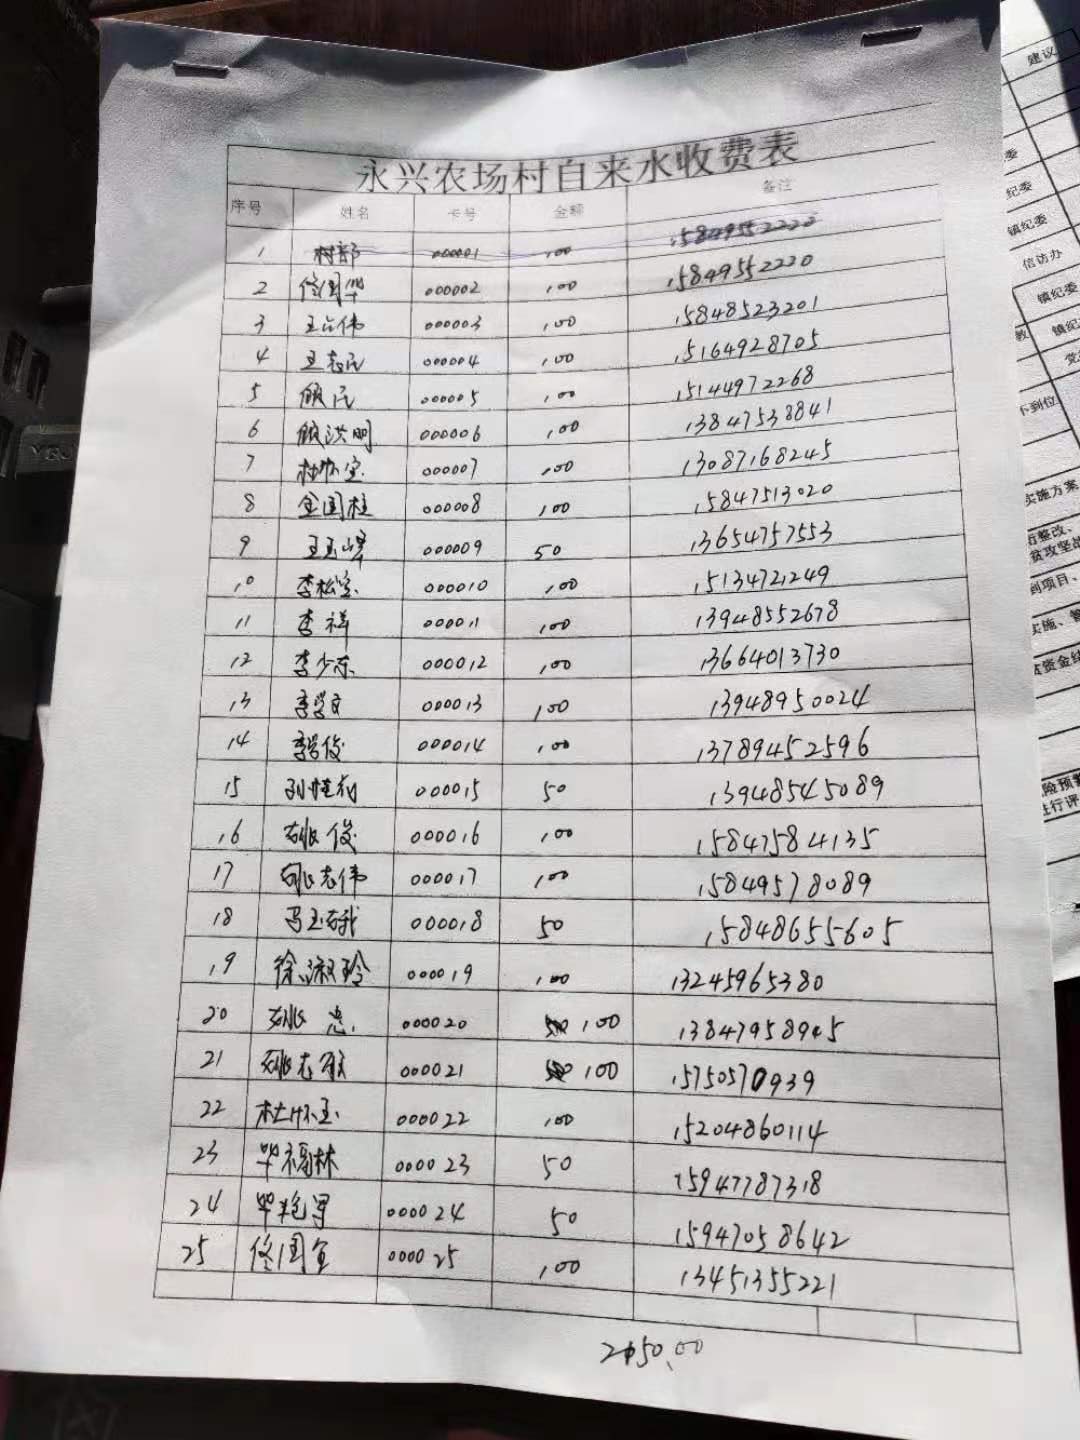 永兴农场村自来水收费表
序号 姓名 卡号 金额 备注
1 村部 000001 100 15849552220
2 佟国华 000002 100 15849552220
3 王占伟 000003 100 15848523201
4 王志民 000004 100 15164928705
5 顾民 000005 100 15144972268
6 顾洪明 000006 100 13847538841
7 杜怀宝 000007 100 13087168245
8 金国柱 000008 100 15847513020
9 王玉峰 000009 50 13654757553
10 李松宝 000010 100 15134721249
11 李祥 000011 100 13948552678
12 李少东 000012 100 13664013730
13 李学文 000013 100 13948950024
14 李学俊 000014 100 13789452596
15 孙桂 000015 50 13948545089
16 姚俊 000016 100 15847584135
17 姚志伟 000017 100 15849578089
18 冯玉 000018 50 15848655605
19 徐淑玲 000019 100 13245965380
20 姚忠 000020 100 13847958945
21 姚志 000021 100 15750570939
22 杜怀玉 000022 100 15204860114
23 毕福林 000023 50 15947787318
24 毕艳军 000024 50 15947058642
25 佟国军 000025 100 13451355221
2150.00
建议
纪委
镇纪委
信访办
镇纪委
教 镇纪
不到位
实施方案
整改、
贫攻坚战
到项目、
实施、
资金
险预
进行评